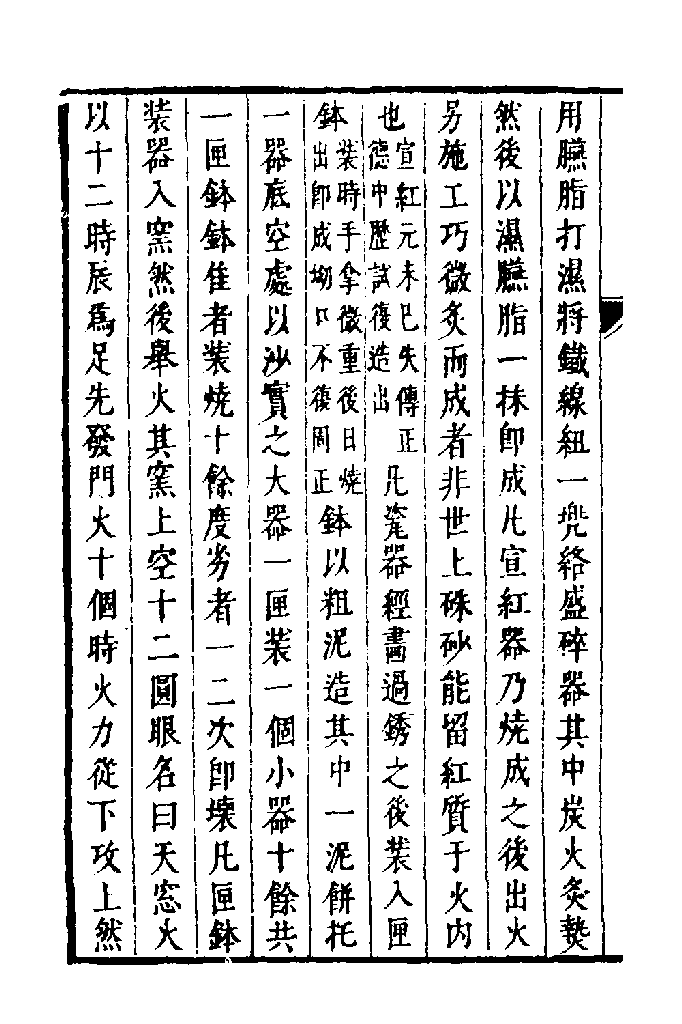 用臙脂打濕將鐵線紐一兠絡盛碎器其中炭火炙𤍠
然後以濕臙脂一抹即成凡宣紅器乃燒成之後出火
另施工巧微炙而成者非世上硃砂能留紅質于火内
也宣紅元末已失傳正德中歷試復造出凡瓷器經畫過銹之後裝入匣
鉢裝時手拿微重後日燒出即成坳口不復周正鉢以粗泥造其中一泥餅托
一器底空處以沙實之大器一匣裝一個小器十餘共
一匣鉢鉢佳者裝燒十餘度劣者一二次即壞凡匣鉢
裝器入窯然後舉火其窯上空十二圓眼名曰天窓火
以十二時辰爲足先發門火十個時火力從下攻上然